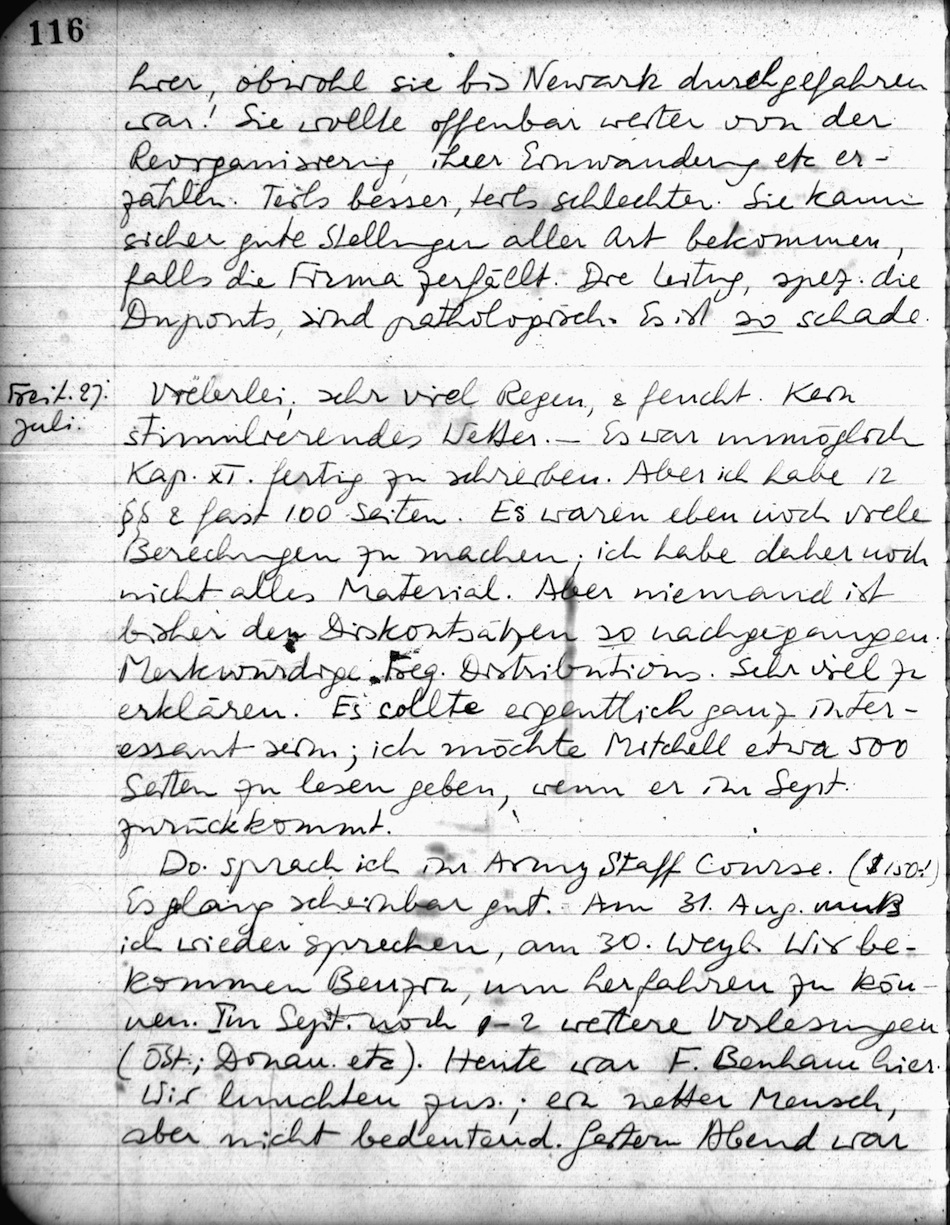 116
hier, obwohl sie bis Newark durchgefahren
war! Sie wollte offenbar weiter von der
Reorganisierung, ihrer Einwanderung etc er-
zählen. Teils besser, teils schlechter. Sie kann
sicher gute Stellungen aller Art bekommen,
falls die Firma zerfällt. Die Leitung, spez. die
Duponts, sind pathologisch. Es ist so schade.
Freit. 27.
Juli.
Vielerlei; sehr viel Regen, & feucht. Kein
stimulierendes Wetter. – Es war unmöglich
Kap. XI. fertig zu schreiben. Aber ich habe 12
§§ & fast 100 Seiten. Es waren eben noch viele
Berechnungen zu machen; ich habe daher noch
nicht alles Material. Aber niemand ist
bisher den Diskontsätzen so nachgegangen.
Merkwürdige Freq. Distributions. Sehr viel zu
erklären. Es sollte eigentlich ganz inter-
essant sein; ich möchte Mitchell etwa 500
Seiten zu lesen geben, wenn er im Sept.
zurückkommt.
Do. sprach ich im Army Staff Course. ($150!)
Es glang scheinbar gut. Am 31. Aug. muß
ich wieder sprechen, am 30. Weyl. Wir be-
kommen Benzin, um herfahren zu kön-
nen. Im Sept. noch 1–2 weitere Vorlesungen
(Öst.; Donau. etc). Heute war F. Benham hier.
Wir lunchten zus.; ein netter Mensch,
aber nicht bedeutend. Gestern Abend war